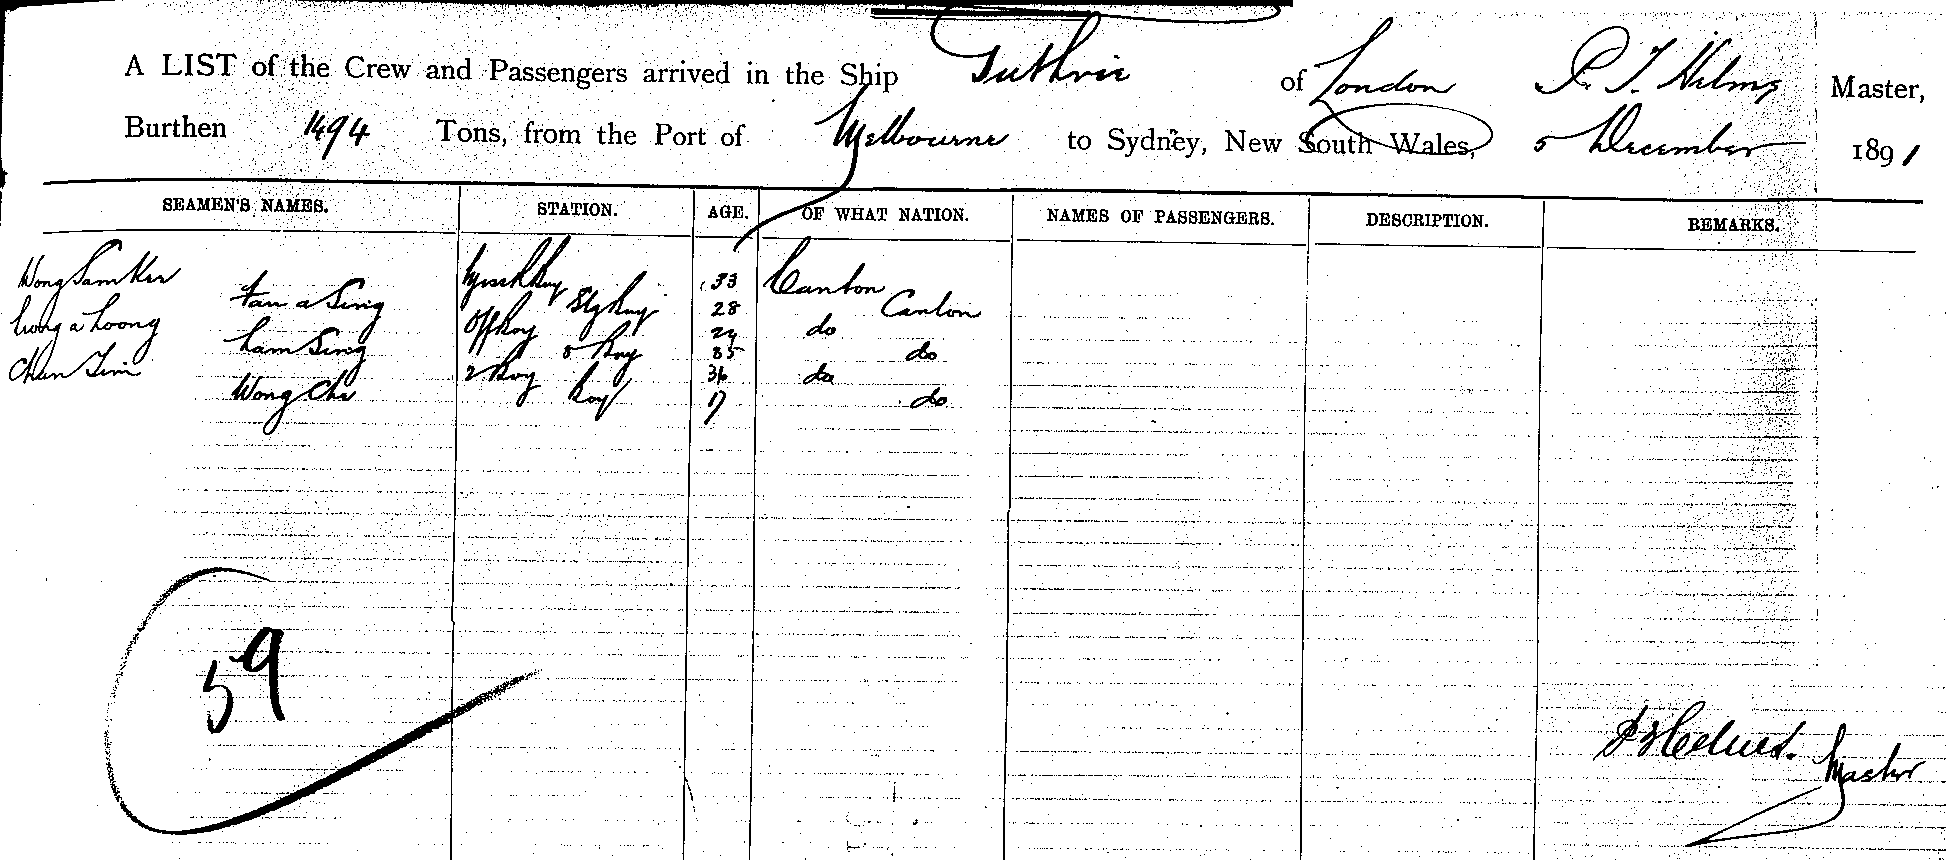 A LIST of the Crew and Passengers arrived in the Ship Guthrie of London P. T. Helms Master,
Burthen 1494 Tons, from the Port of Melbourne to Sydney, New South Wales, 5 December 1891
SEAMEN'S NAMES. STATION. AGE. OF WHAT NATION. NAMES OF PASSENGERS. DESCRIPTION. REMARKS.
Wong Sam Kee 33 Canton
Tan a Sing 28 Canton
a Loong Off Boy 24 do
Lam Sing Boy 35 do
Chun Tim 2 Boy 36 do
Wong Che Boy 17 do
59
Master